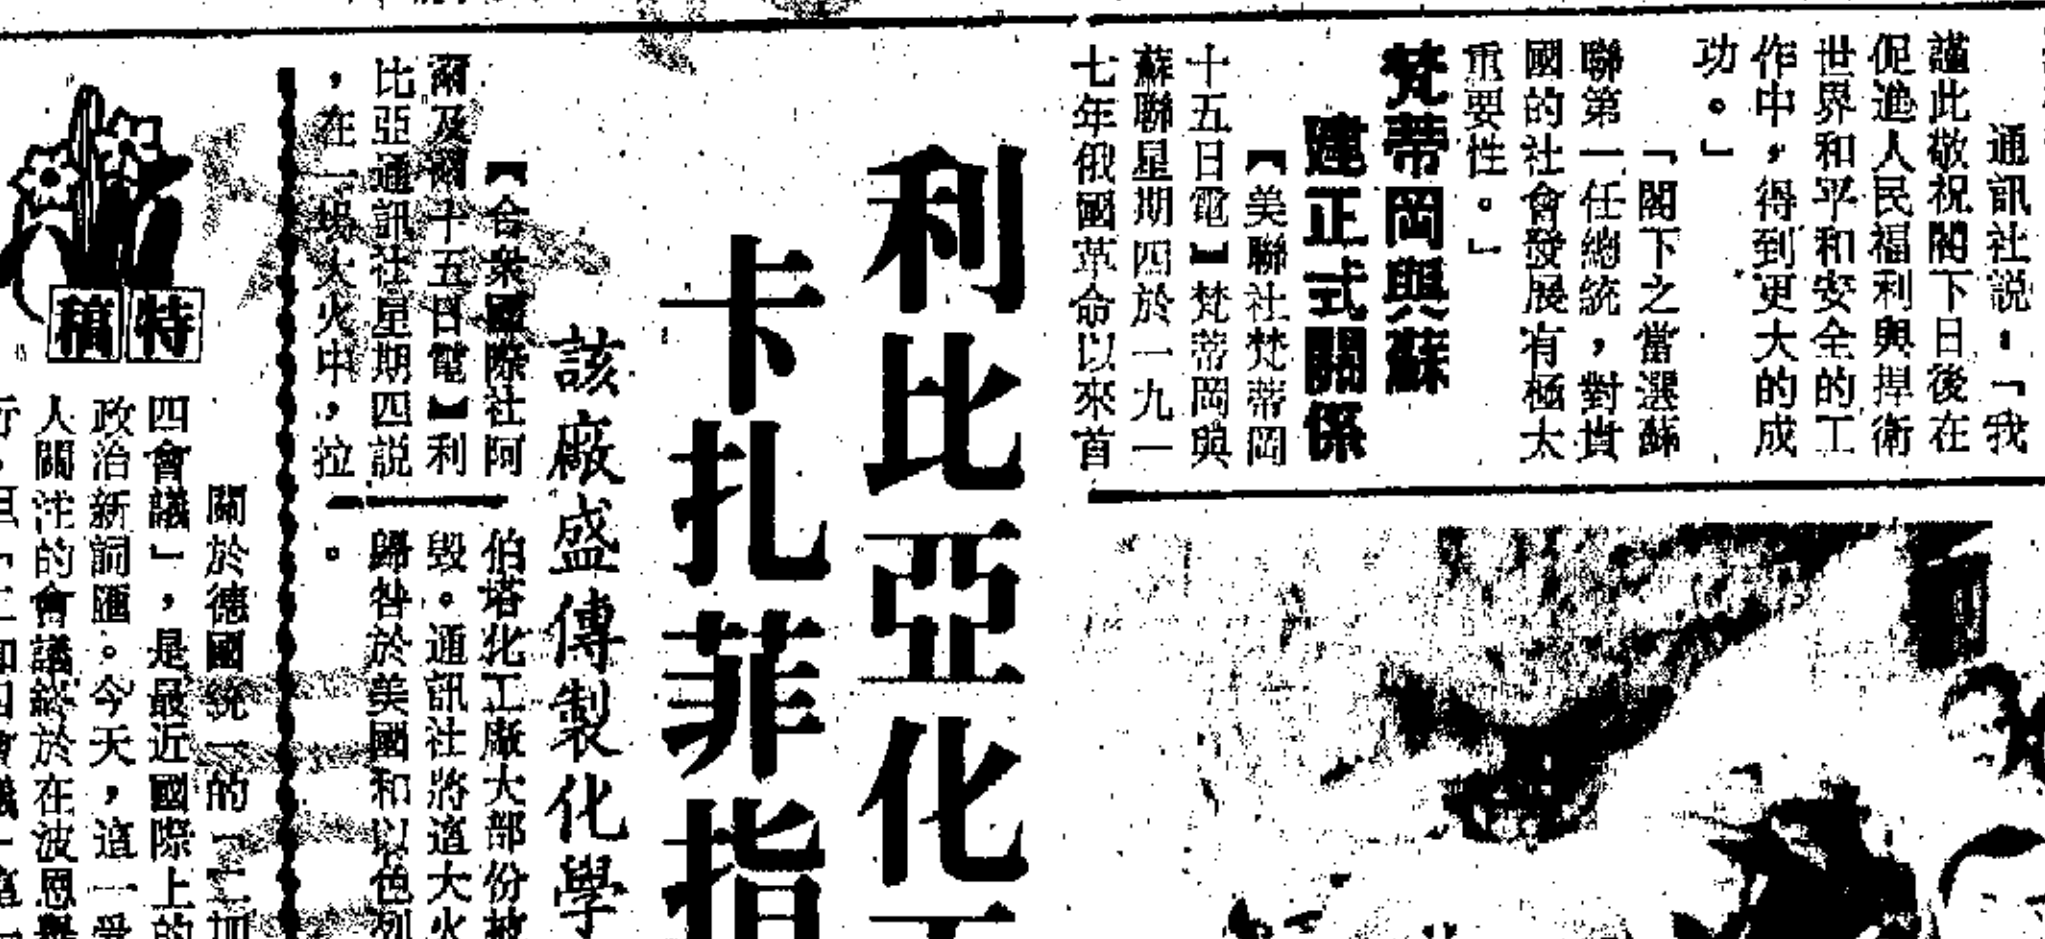 通訊社説：「我
謹此敬祝閣下日後在
促進人民福利與捍衛
世界和平和安全的工
作中，得到更大的成
功。」
「閣下之當選蘇
聯第一任總統，對貴
國的社會發展有極大
重要性。」
梵蒂岡與蘇
建正式關係
【美聯社梵蒂岡
十五日電】梵蒂岡與
蘇聯星期四於一九一
七年俄國革命以來首
利比亞化
卡扎菲指
該廠盛傳製化學
【合衆國際社阿
爾及爾十五日電】利
比亞通訊社星期四説
，在一場大火中，拉
伯塔化工廠大部份被
毀。通訊社將這大火
歸咎於美國和以色列
。
特稿
關於德國統一的「二加
四會議」，是最近國際上的
政治新詞匯。今天，這一受
人關注的會議終於在波恩舉